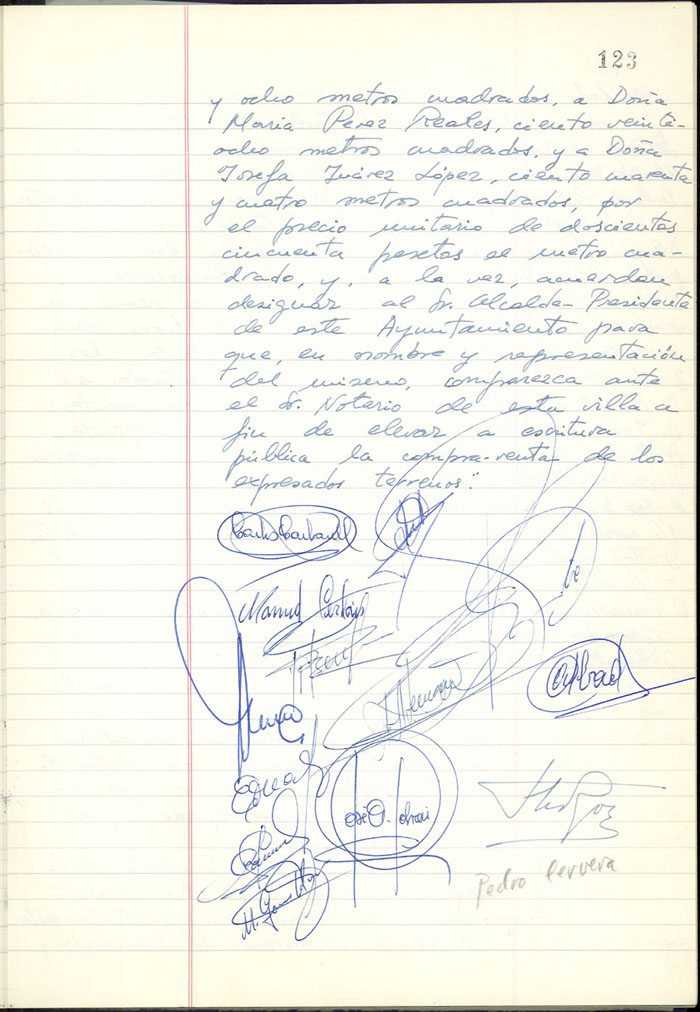 123
y ocho metros cuadrados, a Doña
María Perez Reales, ciento veinti-
ocho metros cuadrados, y a Doña
Josefa Juárez López, ciento cuarenta
y cuatro metros cuadrados, por
el precio unitario de doscientas
cincuenta pesetas el metro cua-
drado, y, a la vez, acuerdan
designar al Sr. Alcalde-Presidente
de este Ayuntamiento para
que, en nombre y representación
del mismo, comparezca ante
el Sr. Notario de esta villa a
fin de elevar a escritura
pública la compra-venta de los
expresados terrenos".
Manuel
Pedro Cervera